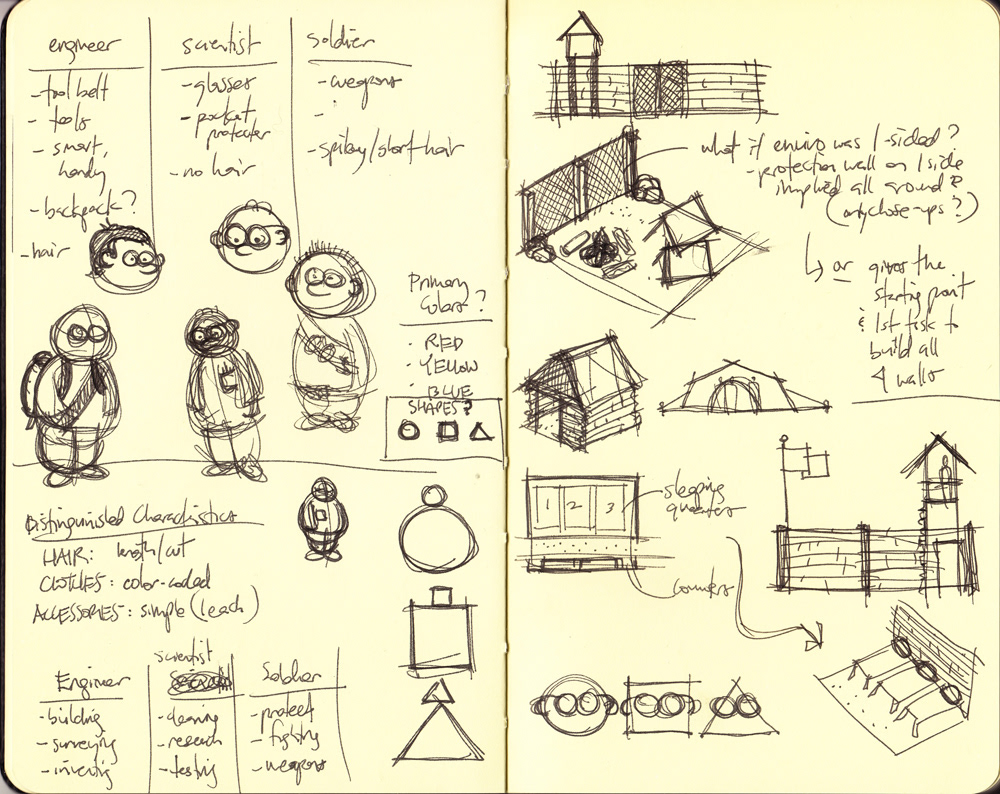 engineer
- tool belt
- tools
- smart,
handy
- backpack?
- hair
scientist
- glasses
- pocket
protecter
- no hair
soldier
- weapons
-
- spikey/short hair
Primary
Colors?
· RED
· YELLOW
· BLUE
SHAPES?
Distinguished Characteristics
HAIR: length/cut
CLOTHES: color-coded
ACCESSORIES: simple (1 each)
Engineer
- building
- surveying
- inventing
scientist
- cleaning
- research
- testing
Soldier
- protect
- fighting
- weapons
what if enviro was 1-sided?
- protection wall on 1 side
implied all around?
(only close-ups?)
↳ or gives the
starting point
& 1st task to
build all
4 walls
1 2 3
sleeping
quarters
counters